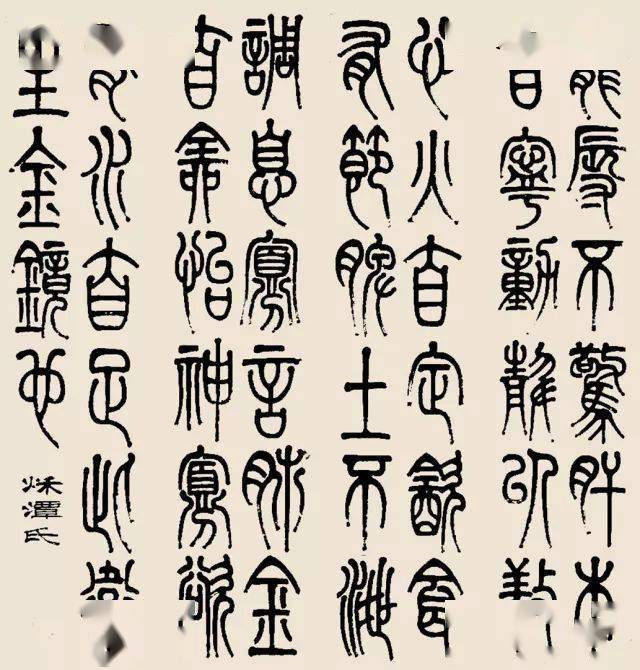 辱不驚肝木
自寧動靜以敬
心火自定飲食
有節脾土不泄
調息寡言肺金
自全怡神寡欲
水自足此養
生金鏡也
潭氏